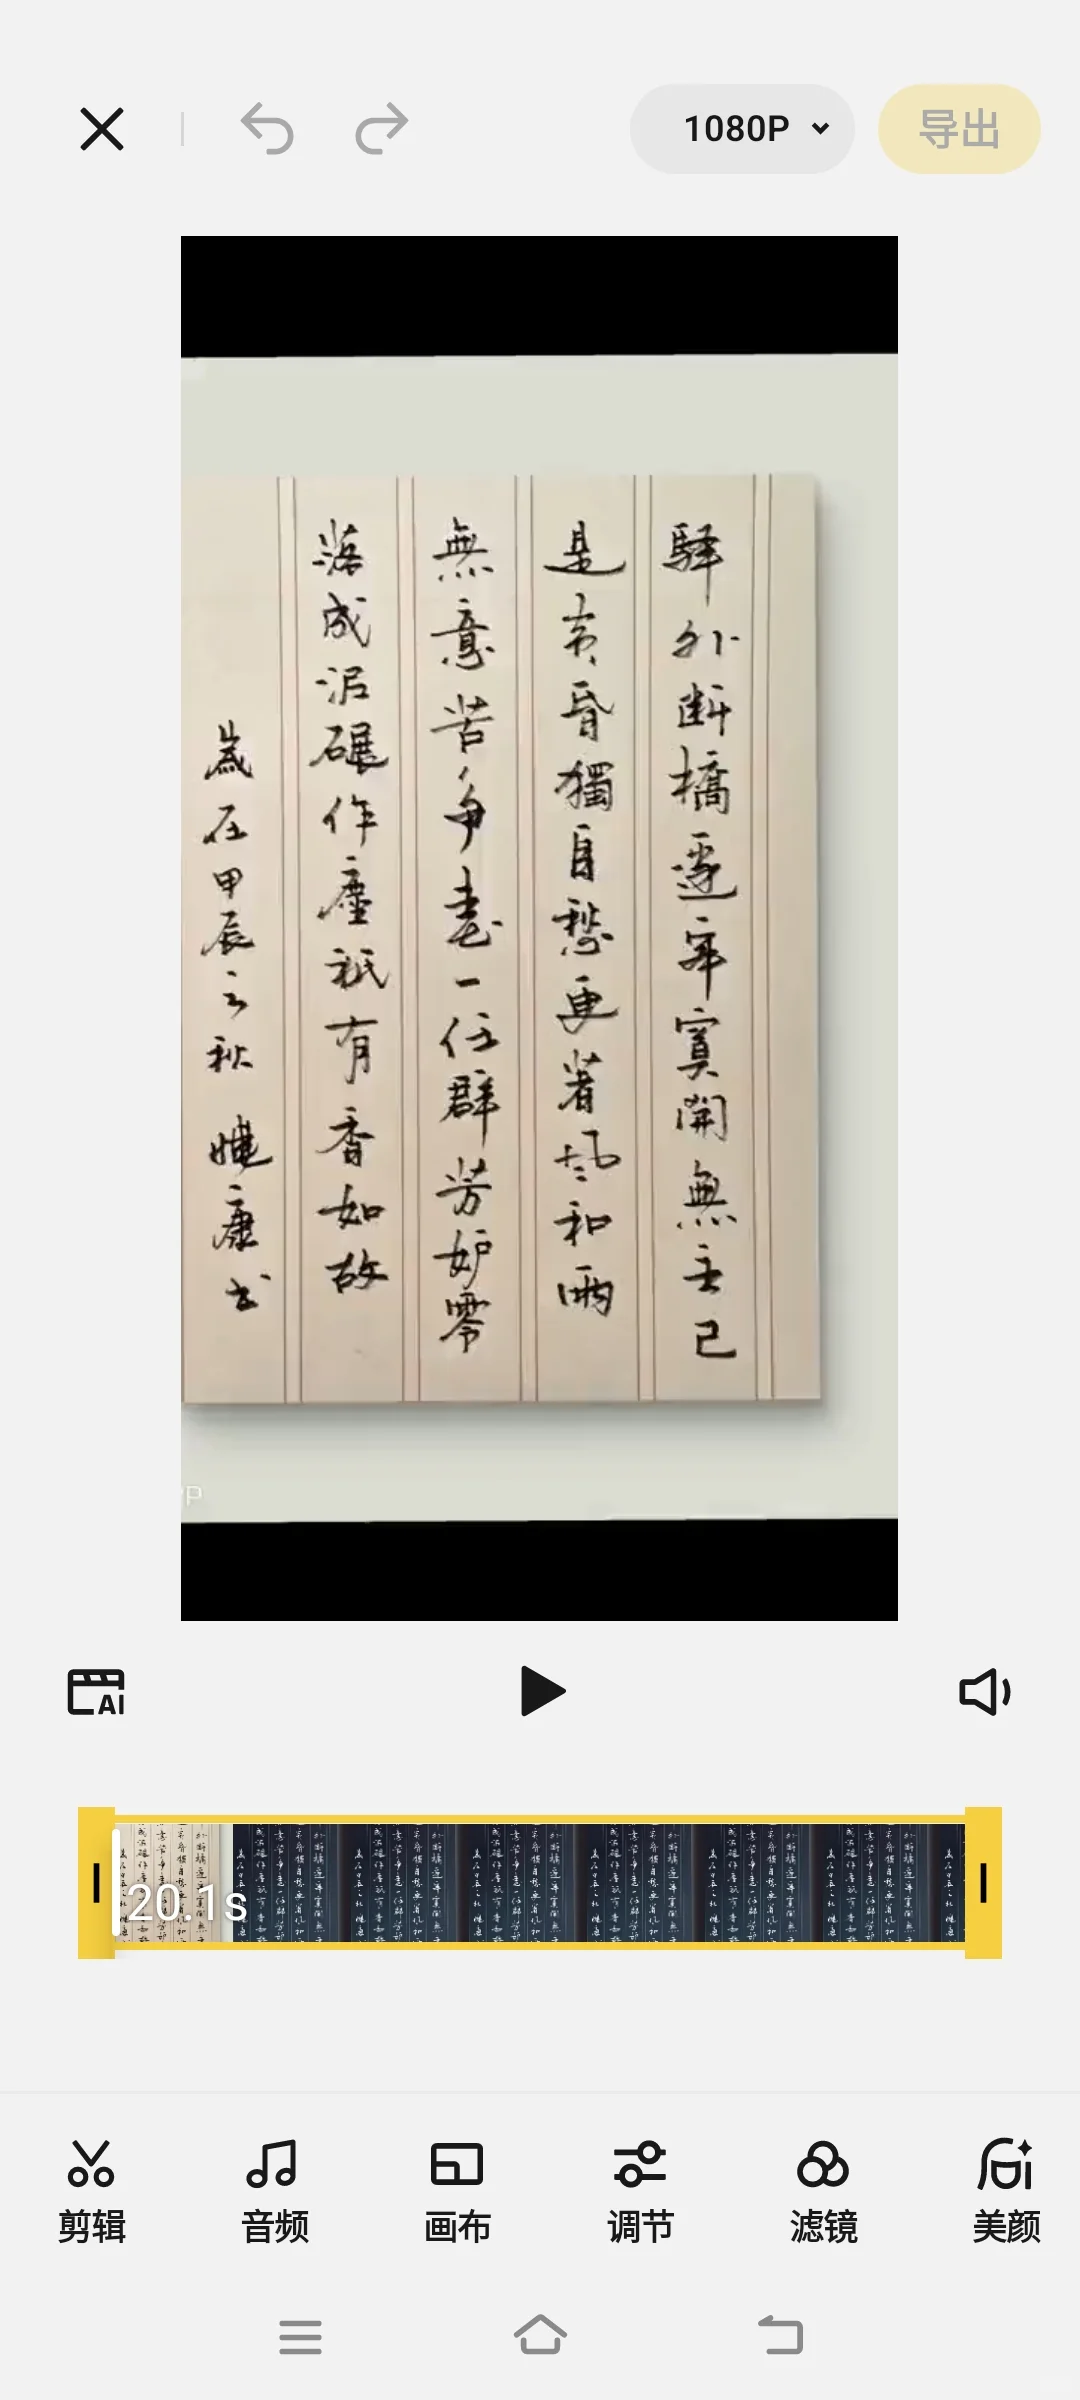 1080P
导出
驛外断橋邊寂寞開無主已
是黄昏獨自愁更著风和雨
無意苦争春一任群芳妒零
落成泥碾作塵祇有香如故
歲在甲辰之秋 婕康书
PP
AI
20.1s
剪辑 音频 画布 调节 滤镜 美颜